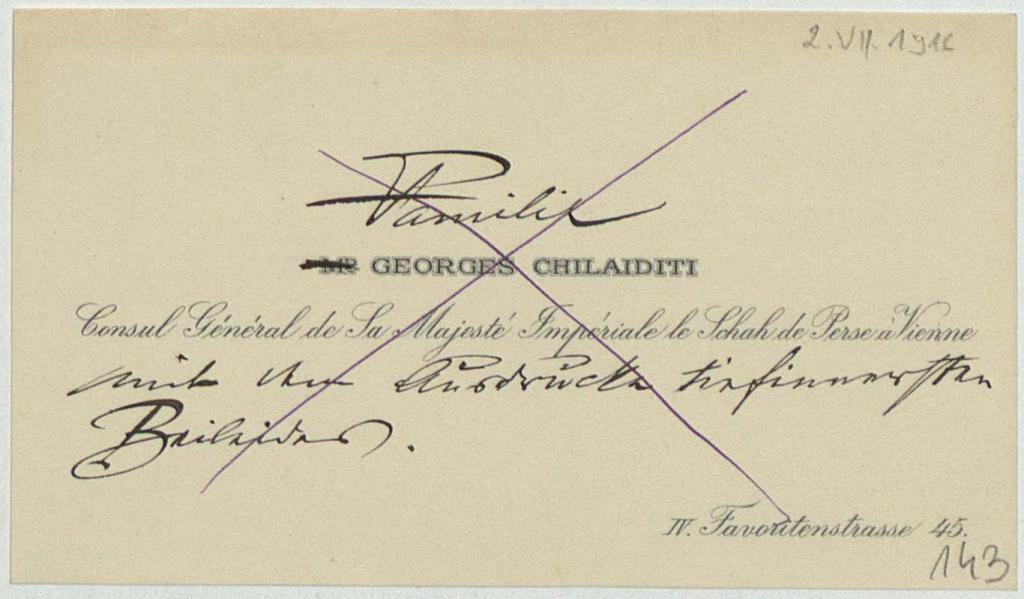 2. VII. 1916
Familie
Mr GEORGES CHILAIDITI
Consul Général de Sa Majesté Impériale le Schah de Perse à Vienne
mit dem Ausdrucke tiefinnersten
Beileides.
IV. Favoritenstrasse 45.
143